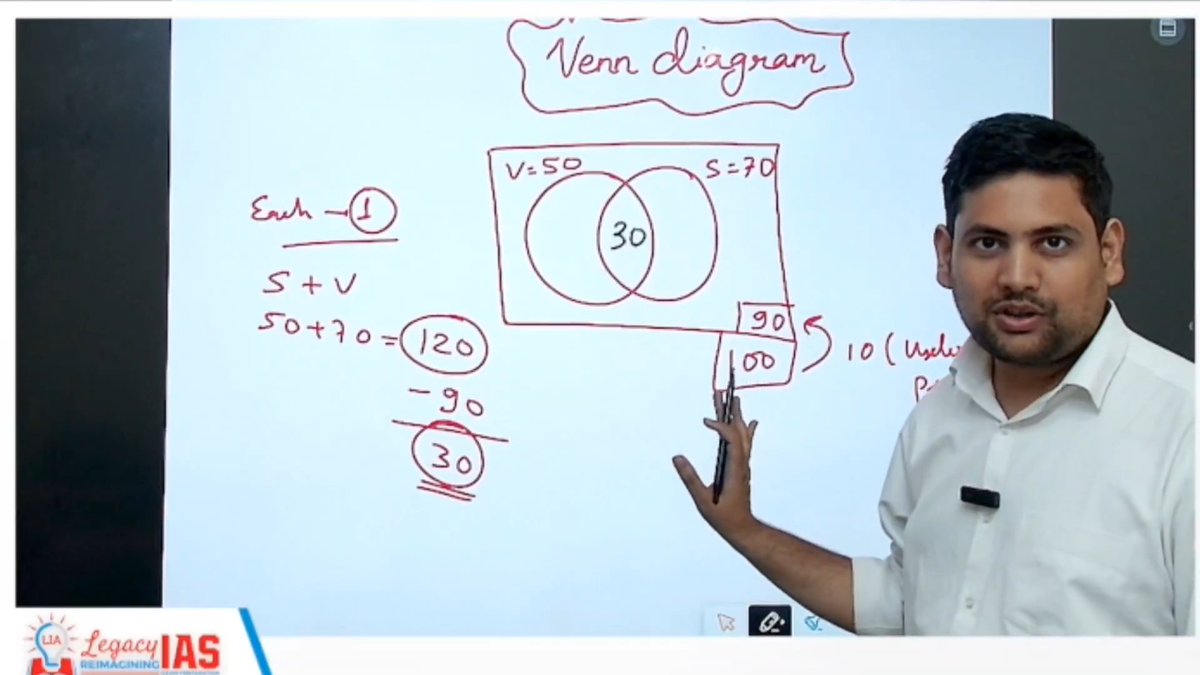 Venn diagram
V=50
S=70
30
90
100
10 (
Each - 1
S + V
50+70 = 120
- 90
30
LIA
Legacy IAS
REIMAGINING